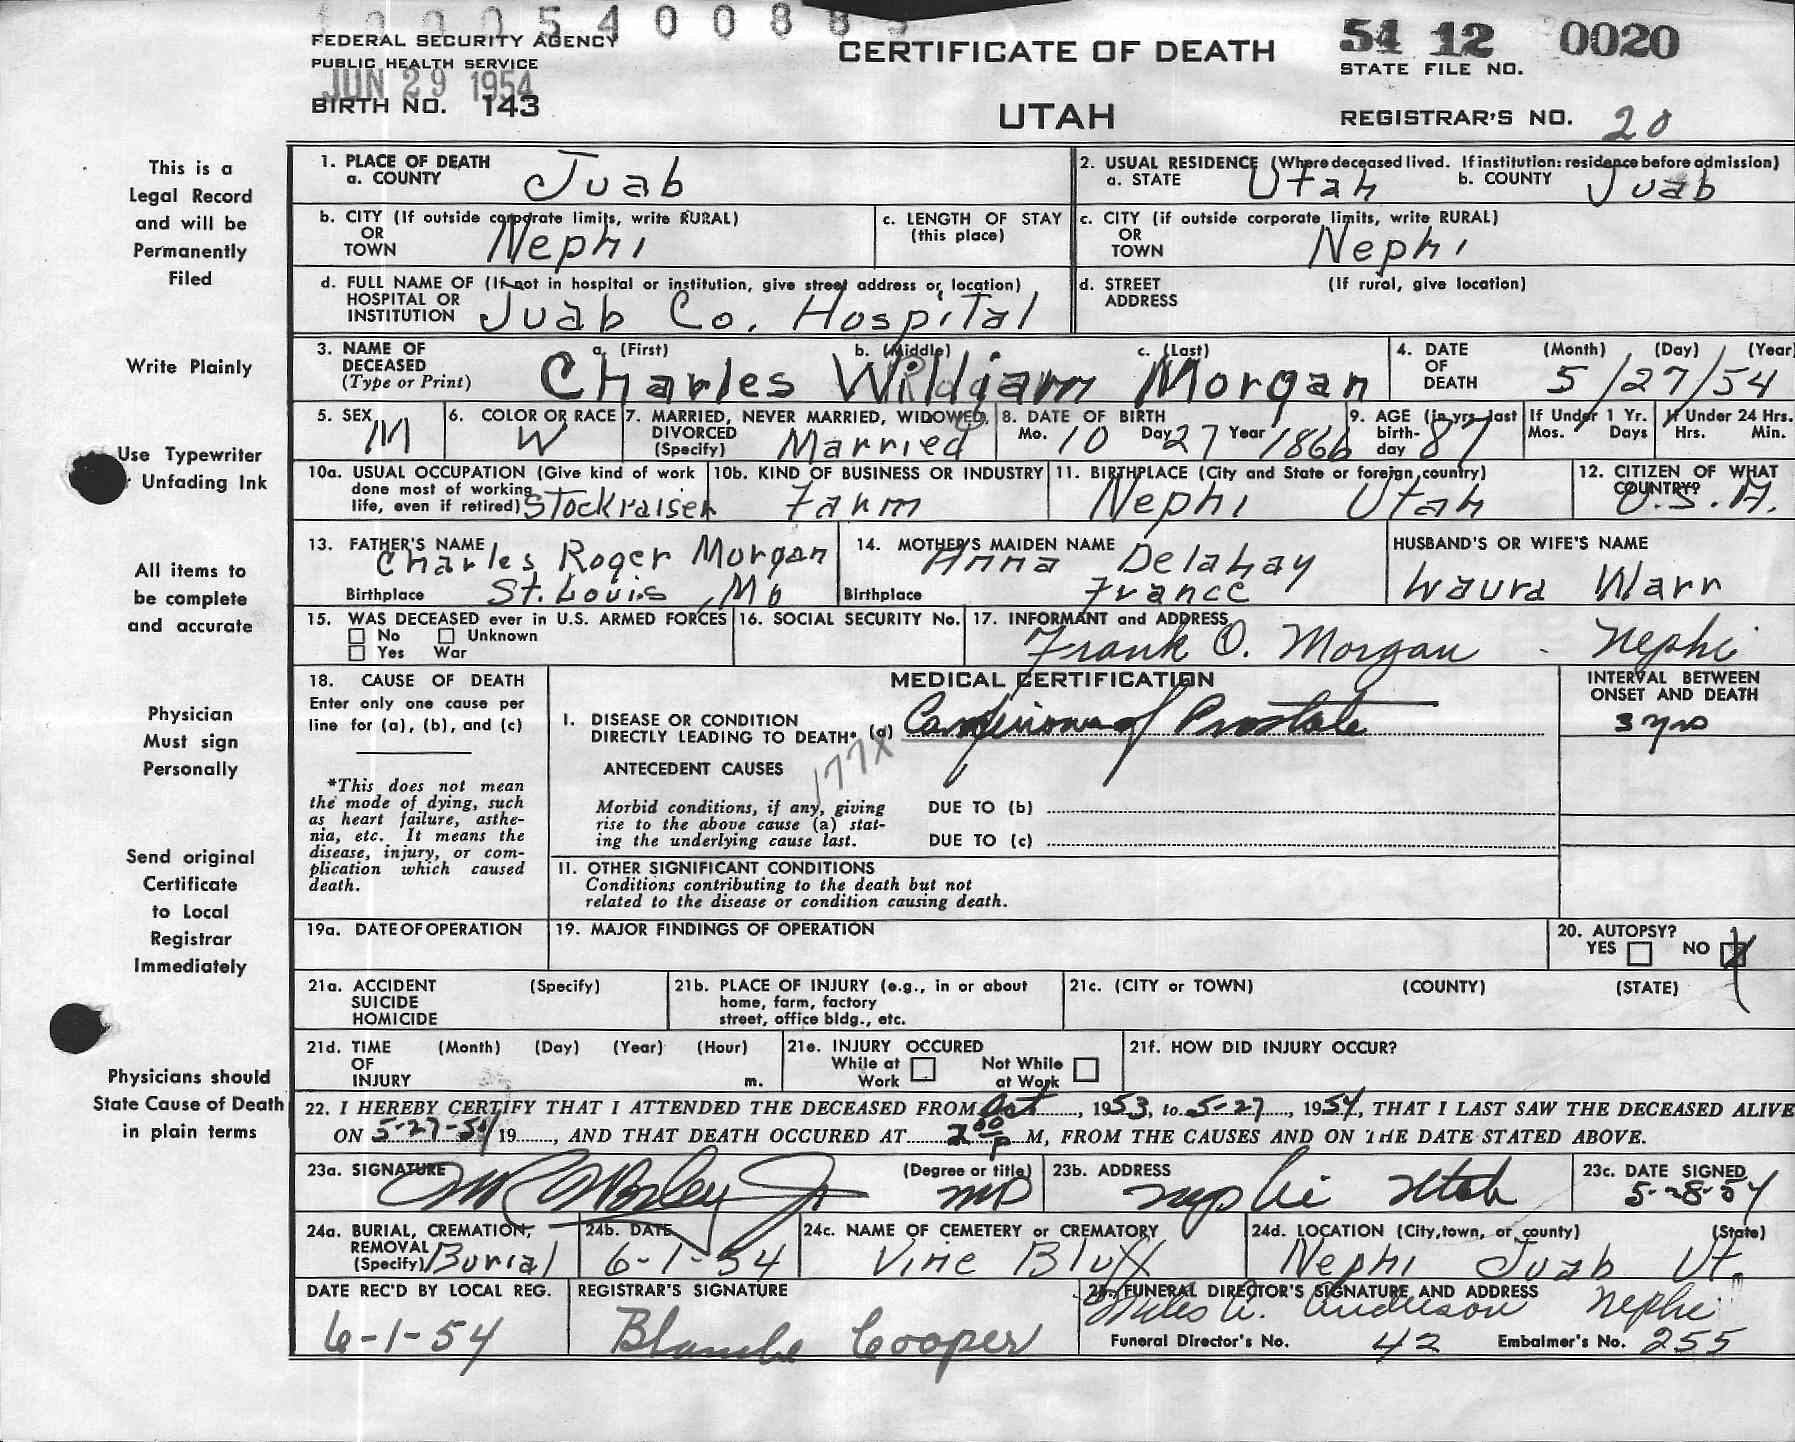 FEDERAL SECURITY AGENCY
PUBLIC HEALTH SERVICE
JUN 29 1954
BIRTH NO. 143
CERTIFICATE OF DEATH
UTAH
54 12 0020
STATE FILE NO.
REGISTRAR'S NO. 20
This is a
Legal Record
and will be
Permanently
Filed
Write Plainly
Use Typewriter
Unfading Ink
All items to
be complete
and accurate
Physician
Must sign
Personally
Send original
Certificate
to Local
Registrar
Immediately
Physicians should
State Cause of Death
in plain terms
1. PLACE OF DEATH
a. COUNTY Juab
2. USUAL RESIDENCE (Where deceased lived. If institution: residence before admission)
a. STATE Utah b. COUNTY Juab
b. CITY (If outside corporate limits, write RURAL)
OR
TOWN Nephi
c. LENGTH OF STAY
(this place)
c. CITY (if outside corporate limits, write RURAL)
OR
TOWN Nephi
d. FULL NAME OF (If not in hospital or institution, give street address or location)
HOSPITAL OR
INSTITUTION Juab Co. Hospital
d. STREET (If rural, give location)
ADDRESS
3. NAME OF a. (First) b. (Middle) c. (Last)
DECEASED
(Type or Print) Charles William Morgan
4. DATE (Month) (Day) (Year)
OF
DEATH 5/27/54
5. SEX M
6. COLOR OR RACE W
7. MARRIED, NEVER MARRIED, WIDOWED,
DIVORCED
(Specify) Married
8. DATE OF BIRTH
Mo. 10 Day 27 Year 1866
9. AGE (in yrs. last
birth-
day 87
If Under 1 Yr.
Mos. Days
If Under 24 Hrs.
Hrs. Min.
10a. USUAL OCCUPATION (Give kind of work
done most of working
life, even if retired) Stockraiser
10b. KIND OF BUSINESS OR INDUSTRY
Farm
11. BIRTHPLACE (City and State or foreign country)
Nephi Utah
12. CITIZEN OF WHAT
COUNTRY? U.S.A.
13. FATHER'S NAME Charles Roger Morgan
Birthplace St. Louis, Mo
14. MOTHER'S MAIDEN NAME
Anna Delahay
Birthplace France
HUSBAND'S OR WIFE'S NAME
Laura Warr
15. WAS DECEASED ever in U.S. ARMED FORCES
No Unknown
Yes War
16. SOCIAL SECURITY No.
17. INFORMANT and ADDRESS
Frank O. Morgan - Nephi
18. CAUSE OF DEATH
Enter only one cause per
line for (a), (b), and (c)
*This does not mean
the mode of dying, such
as heart failure, asthe-
nia, etc. It means the
disease, injury, or com-
plication which caused
death.
MEDICAL CERTIFICATION
I. DISEASE OR CONDITION
DIRECTLY LEADING TO DEATH* (a) Carcinoma of Prostate
177X
ANTECEDENT CAUSES
Morbid conditions, if any, giving
rise to the above cause (a) stat-
ing the underlying cause last.
DUE TO (b)
DUE TO (c)
II. OTHER SIGNIFICANT CONDITIONS
Conditions contributing to the death but not
related to the disease or condition causing death.
INTERVAL BETWEEN
ONSET AND DEATH
3 yrs
19a. DATE OF OPERATION
19. MAJOR FINDINGS OF OPERATION
20. AUTOPSY?
YES NO X
21a. ACCIDENT (Specify)
SUICIDE
HOMICIDE
21b. PLACE OF INJURY (e.g., in or about
home, farm, factory
street, office bldg., etc.
21c. (CITY or TOWN) (COUNTY) (STATE)
21d. TIME (Month) (Day) (Year) (Hour)
OF
INJURY m.
21e. INJURY OCCURED
While at Not While
Work at Work
21f. HOW DID INJURY OCCUR?
22. I HEREBY CERTIFY THAT I ATTENDED THE DECEASED FROM Oct, 1953, to 5-27, 1954, THAT I LAST SAW THE DECEASED ALIVE
ON 5-27-54 19, AND THAT DEATH OCCURED AT 2 00 P M, FROM THE CAUSES AND ON THE DATE STATED ABOVE.
23a. SIGNATURE (Degree or title) MD
23b. ADDRESS
Nephi Utah
23c. DATE SIGNED
5-28-54
24a. BURIAL, CREMATION,
REMOVAL
(Specify) Burial
24b. DATE
6-1-54
24c. NAME OF CEMETERY or CREMATORY
Vine Bluff
24d. LOCATION (City, town, or county) (State)
Nephi Juab Ut.
DATE REC'D BY LOCAL REG.
6-1-54
REGISTRAR'S SIGNATURE
Blanche Cooper
25. FUNERAL DIRECTOR'S SIGNATURE AND ADDRESS
Miles A. Anderson Nephi
Funeral Director's No. 42 Embalmer's No. 255